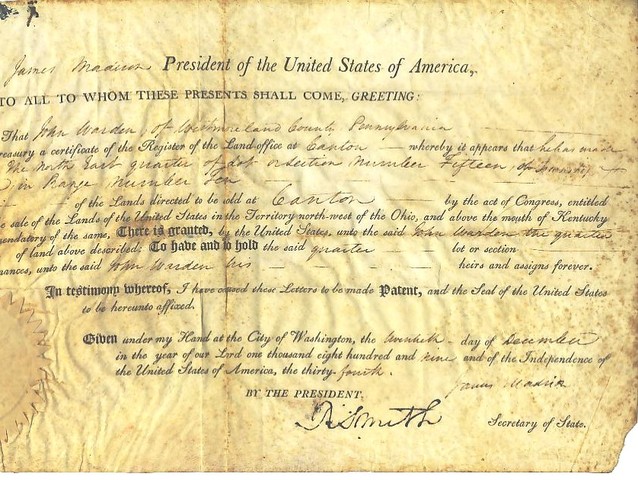 James Madison, President of the United States of America,
TO ALL TO WHOM THESE PRESENTS SHALL COME, GREETING:
That John Warden, of Westmoreland County Pennsylvania
reasury a certificate of the Register of the Land-office at Canton whereby it appears that he has made
the North East quarter of Lot or Section Number Fifteen, of Township
in Range Number Ten
of the Lands directed to be sold at Canton by the act of Congress, entitled
e sale of the Lands of the United States in the Territory north-west of the Ohio, and above the mouth of Kentucky
mendatory of the same, There is granted, by the United States, unto the said John Warden the quarter
of land above described: To have and to hold the said quarter lot or section
nances, unto the said John Warden his heirs and assigns forever.
In testimony whereof, I have caused these Letters to be made Patent, and the Seal of the United States
to be hereunto affixed.
Given under my Hand at the City of Washington, the twentieth day of December
in the year of our Lord one thousand eight hundred and nine and of the Independence of
the United States of America, the thirty-fourth.
James Madison
BY THE PRESIDENT,
R Smith Secretary of State.